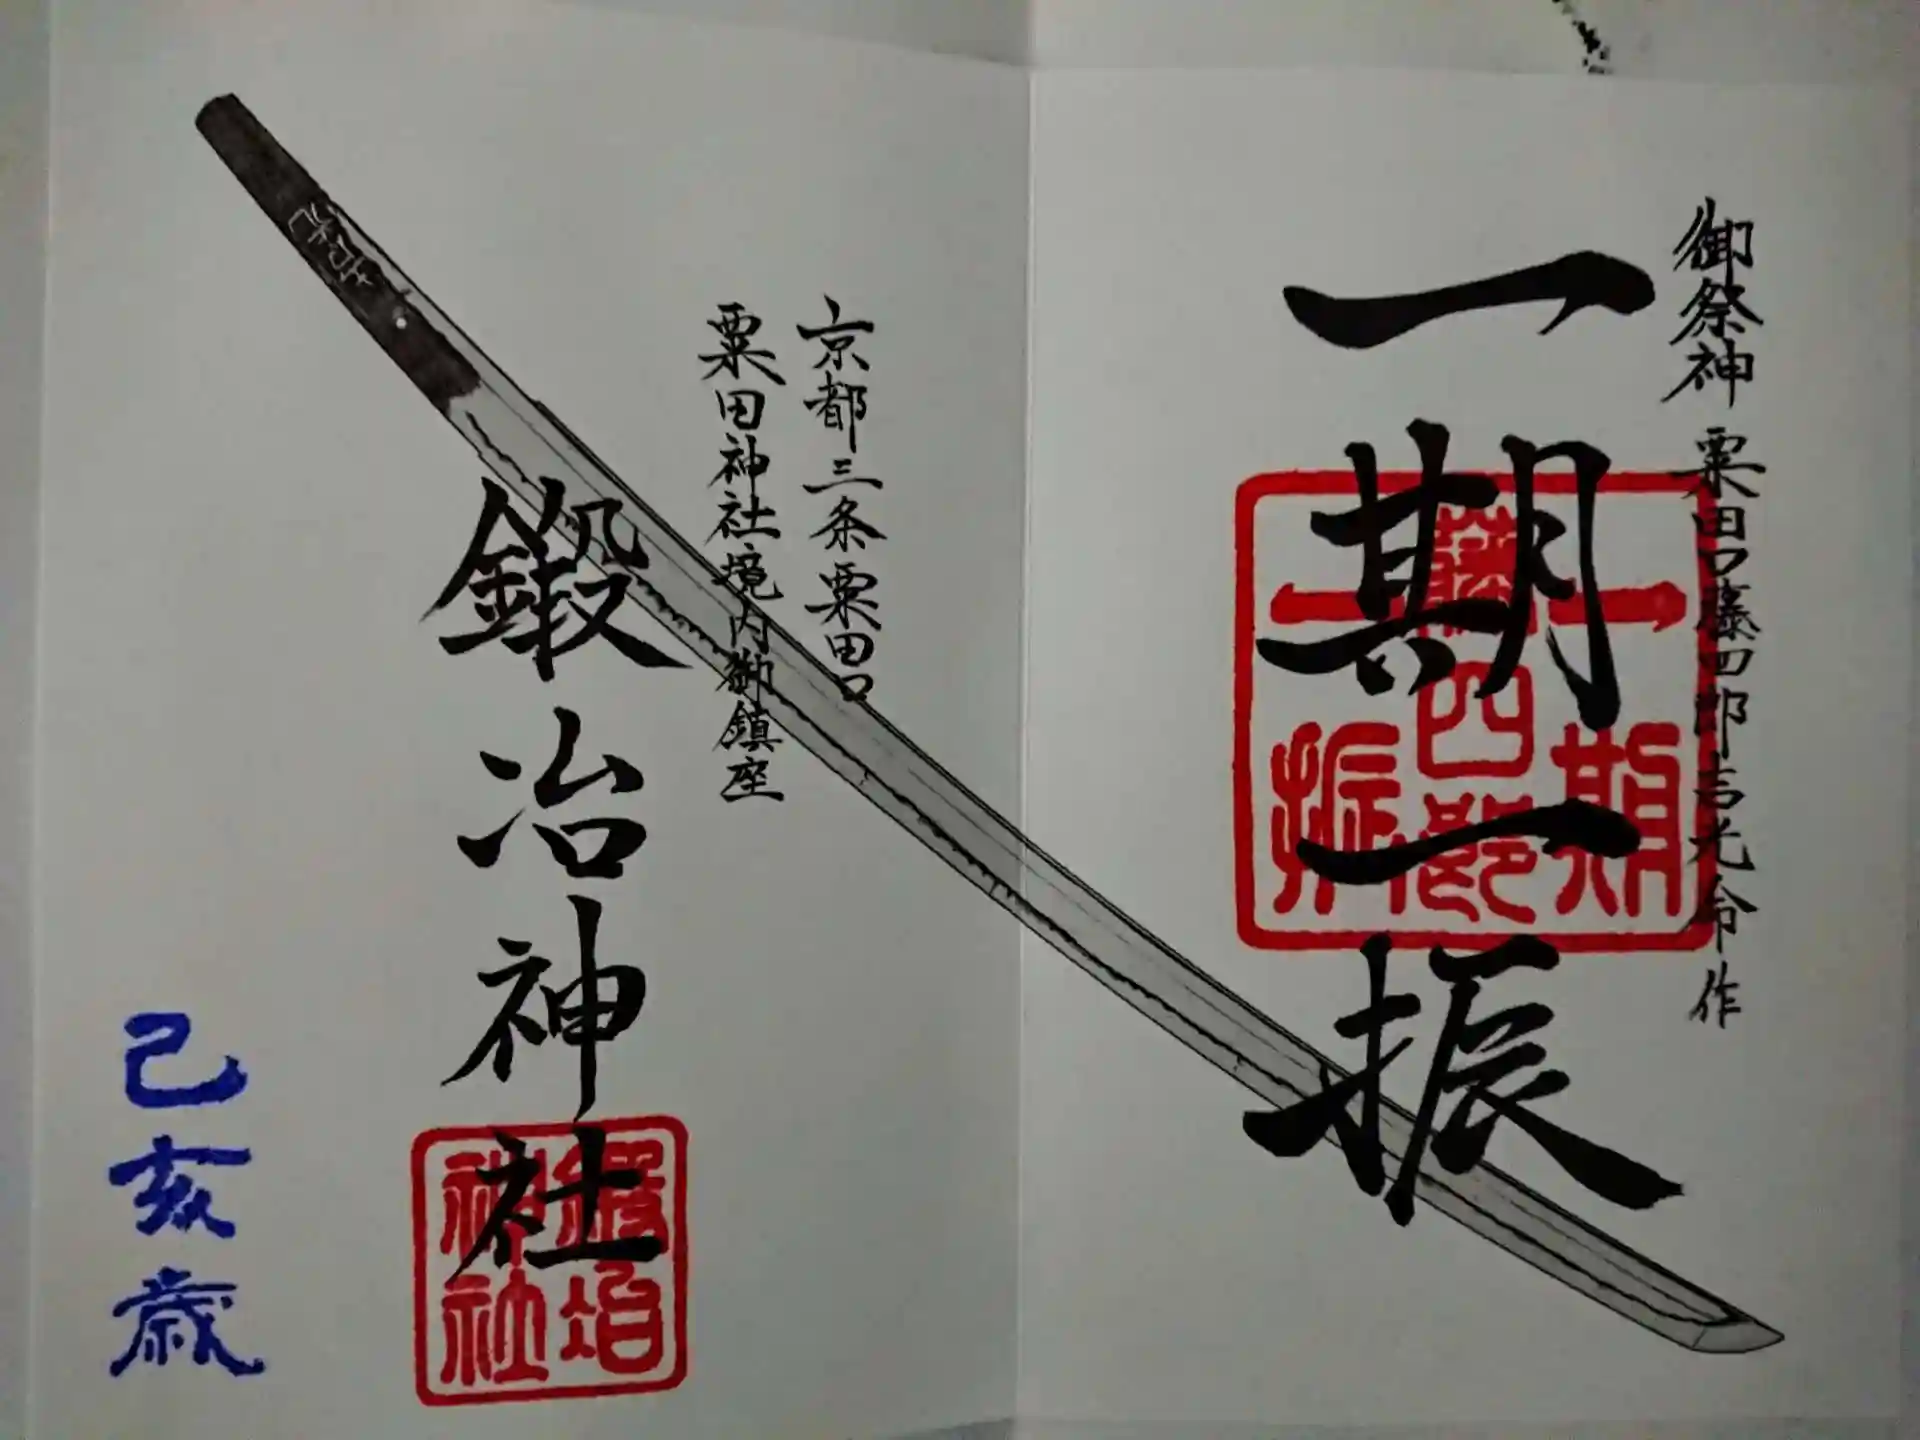 御祭神 粟田口藤四郎吉光命作
一期一振
一期
藤四郎
一振
京都三条粟田口
粟田神社境内御鎮座
鍛冶神社
鍛冶
神社
己亥歳